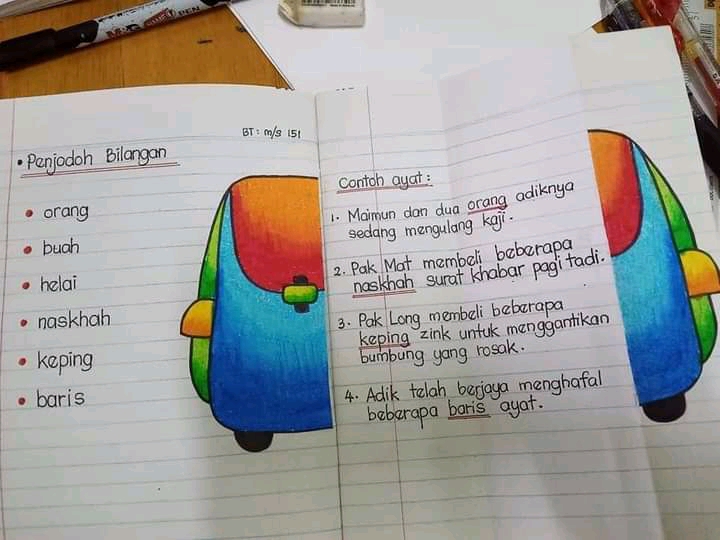 BT: m/s 151
• Penjodoh Bilangan
• orang
• buah
• helai
• naskhah
• keping
• baris
Contoh ayat:
1. Maimun dan dua orang adiknya
sedang mengulang kaji.
2. Pak Mat membeli beberapa
naskhah surat khabar pagi tadi.
3. Pak Long membeli beberapa
keping zink untuk menggantikan
bumbung yang rosak.
4. Adik telah berjaya menghafal
beberapa baris ayat.